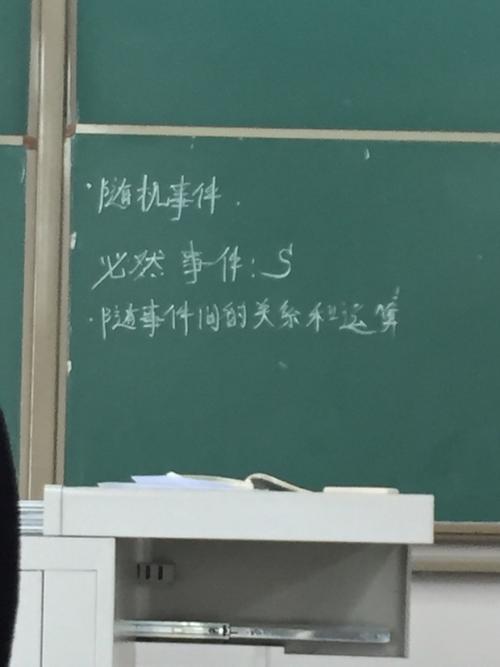 ·随机事件.
必然事件:S
·随事件间的关系和运算